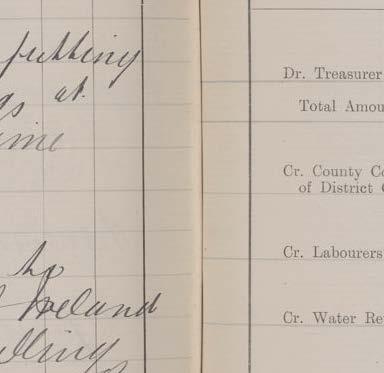 putting
at
to
Ireland
Dr. Treasurer
Total Amou
Cr. County Co
of District C
Cr. Labourers
Cr. Water Re